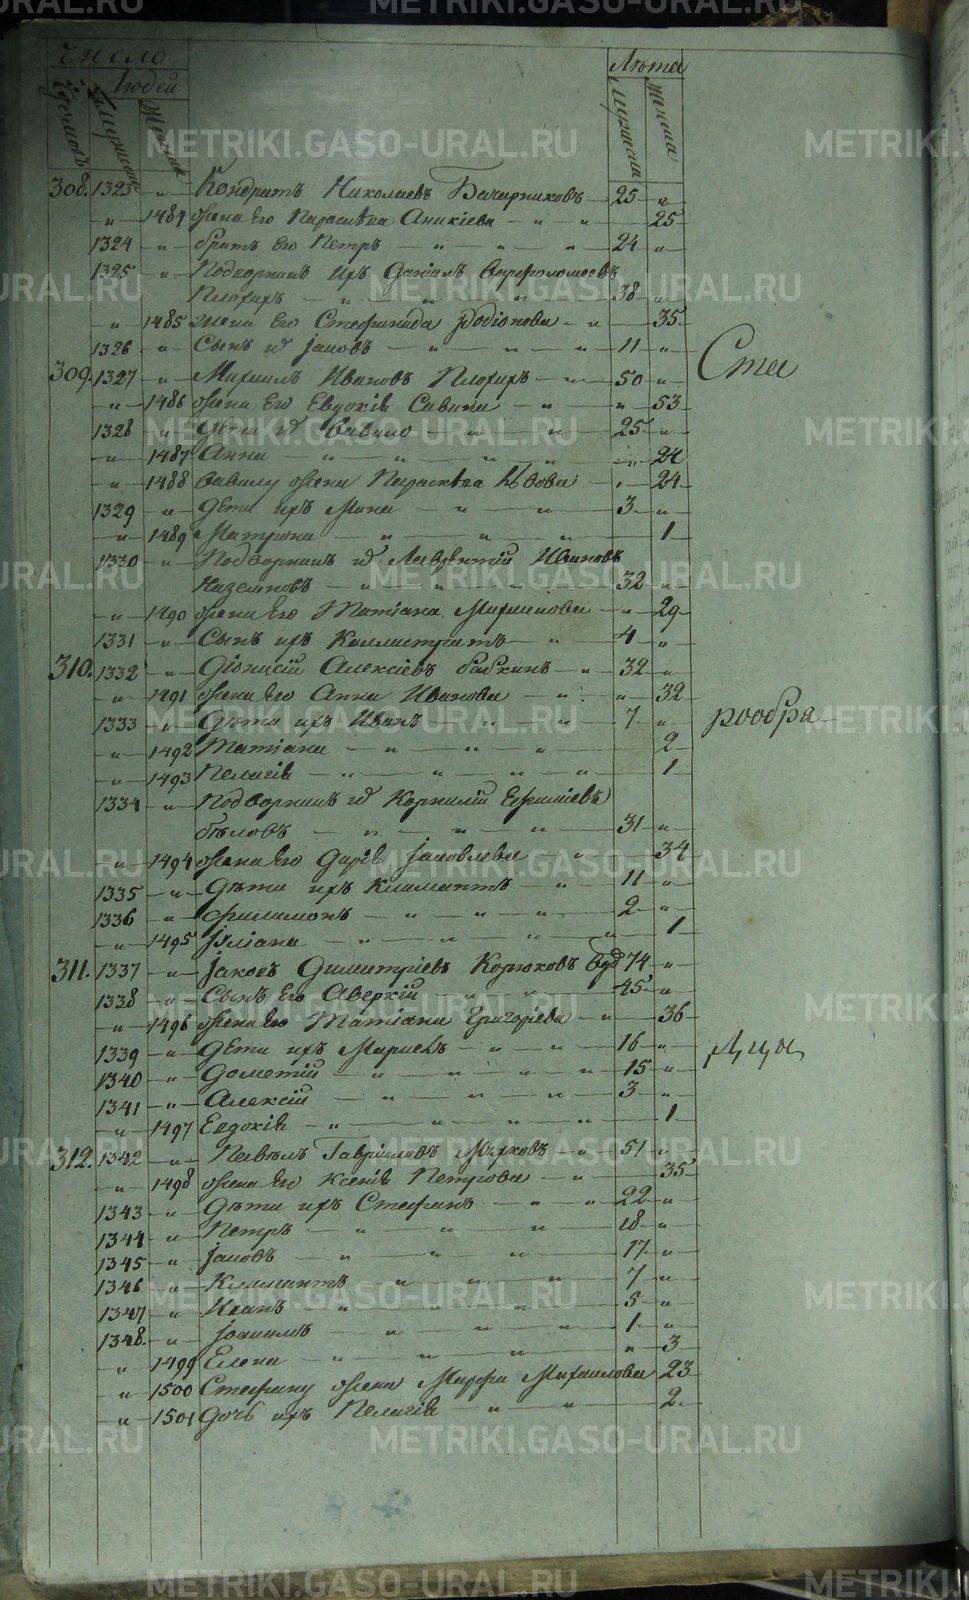 METRIKI.GASO-URAL.RU
Число Лѣта
Домовъ Людей
Мужеска Женска Мужеска Женска
308. 1323 „ Кондратъ Николаевъ Бачарниковъ 25 „
„ 1484 жена его Параскева Аникіева „ „ 25
1324 „ братъ его Петръ „ „ „ 24 „
1325 „ Подворникъ ихъ Данiилъ Варфоломѣевъ
Плохихъ „ „ „ 38 „
„ 1485 жена его Стефанида Родіонова „ 35
1326 „ Сынъ ихъ Іаковъ „ „ „ 11 „
309. 1327 „ Михаилъ Ивановъ Плохихъ „ 50 „
„ 1486 жена его Евдокія Савина „ „ 53
1328 „ дѣти ихъ Вавило „ „ 25 „
„ 1487 Анна „ „ „ „ „ 24
„ 1488 Вавилу жена Параскева Львова „ 24
1329 „ дѣти ихъ Мина „ „ 3 „
„ 1489 Матрона „ „ „ 1
1330 „ Подворникъ их Лаврентій Ивановъ
„ „ „ 32 „
„ 1490 жена его Татіана „ 29
1331 „ Сынъ ихъ Каллистратъ „ 4 „
310. 1332 „ Діонисій Алексіевъ Бабкинъ „ 32 „
„ 1491 жена его Анна Иванова „ „ 32
1333 „ Дѣти ихъ Иванъ „ „ 7 „
„ 1492 Татіана „ „ „ 2
„ 1493 Пелагія „ „ „ „ 1
1334 „ Подворникъ их Корнилій Ефиміевъ
Бѣловъ „ „ „ 31 „
„ 1494 жена его Дарія Іаковлева „ 34
1335 „ Дѣти ихъ Климантъ „ 11 „
1336 „ Филимонъ „ „ „ 2 „
„ 1495 Іуліана „ „ „ „ 1
311. 1337 „ Іаковъ Димитріевъ Корюковъ вдъ 74 „
1338 „ Сынъ его Аверкій „ „ 45 „
„ 1496 жена его Татіана Григорiева „ 36
1339 „ Дѣти ихъ „ „ 16 „
1340 „ Дометій „ „ „ „ 15 „
1341 „ Алексій „ „ „ „ 3 „
„ 1497 Евдокія „ „ „ „ 1
312. 1342 „ Павелъ Гавріиловъ „ 51 „
„ 1498 жена его Ксенія Петрова „ 35
1343 „ Дѣти ихъ Стефанъ „ „ 22 „
1344 „ Петръ „ „ „ 18 „
1345 „ Іаковъ „ „ „ 17 „
1346 „ Климантъ „ „ „ 7 „
1347 „ Иванъ „ „ „ 5 „
1348 „ Іоакимъ „ „ „ 1 „
„ 1499 Елена „ „ „ „ 3
„ 1500 Стефану жена Марфа Михаилова 23
„ 1501 Дочь ихъ Пелагія „ „ 2